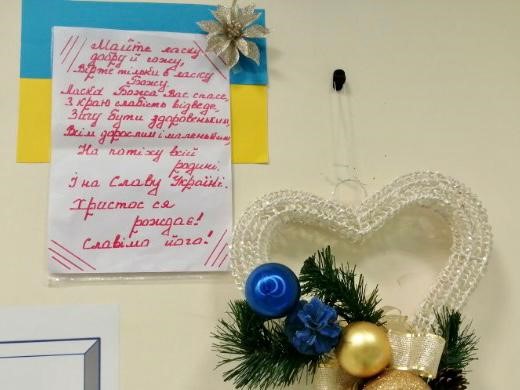 Майте ласку
добру й гожу,
Вірте тільки в ласку
Божу.
Ласка Божа Вас спасе,
З краю слабість відведе,
Зичу бути здоровеньким,
Всім дорослим і маленьким,
На потіху всій
родині.
І на Славу Україні.
Христос ся
рождає!
Славімо його!